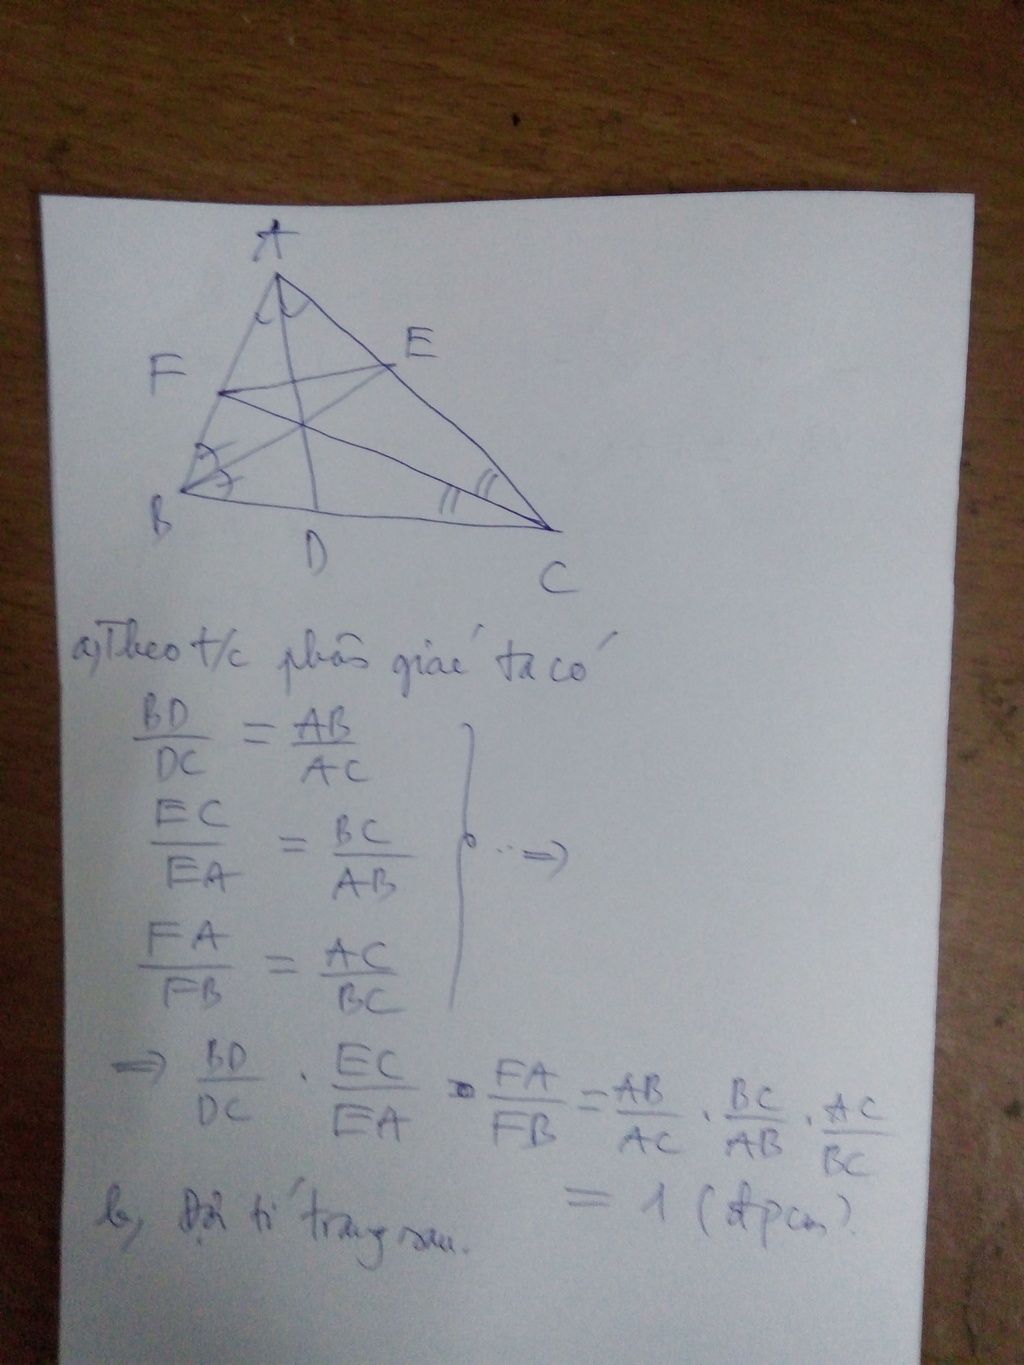 A
F
E
B
D
C
a, Theo t/c phân giác ta có
BD/DC = AB/AC
EC/EA = BC/AB
FA/FB = AC/BC
} ⇒
⇒ BD/DC . EC/EA . FA/FB = AB/AC . BC/AB . AC/BC
= 1 (đpcm).
b, Đợi tí trang sau.